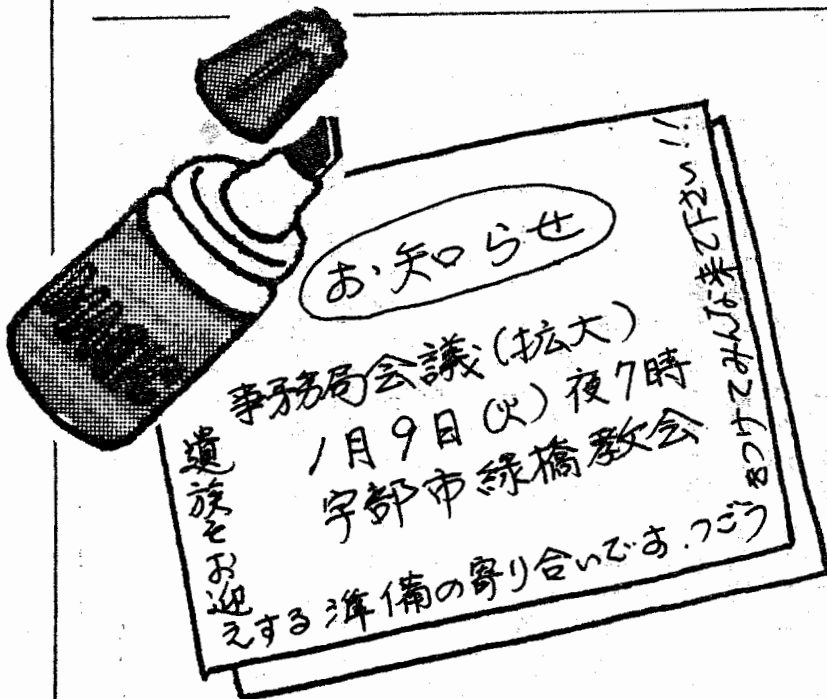 お知らせ
事務局会議(拡大)
1月9日(火)夜7時
宇部市緑橋教会
遺族をお迎
えする準備の寄り合いです.つごう
をつけてみんな来て下さい!!